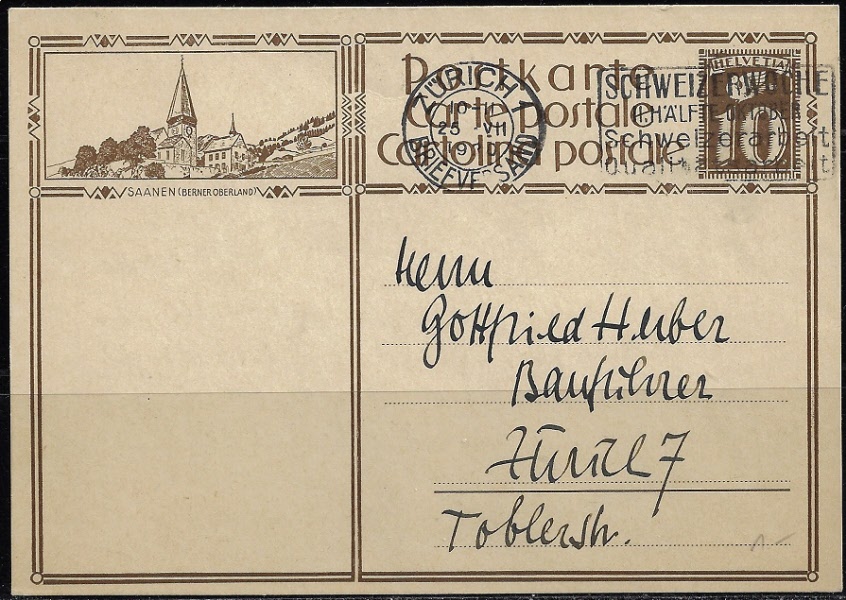 SAANEN (BERNER OBERLAND)
Postkarte
Carte postale
Cartolina postale
HELVETIA
10
ZÜRICH 1
25 VII
BRIEFVERSAND
SCHWEIZERWOCHE
II. HÄLFTE OKTOBER
Schweizerarbeit
Herrn
Gottfried Huber
Bauführer
Zürich 7
Toblerstr.